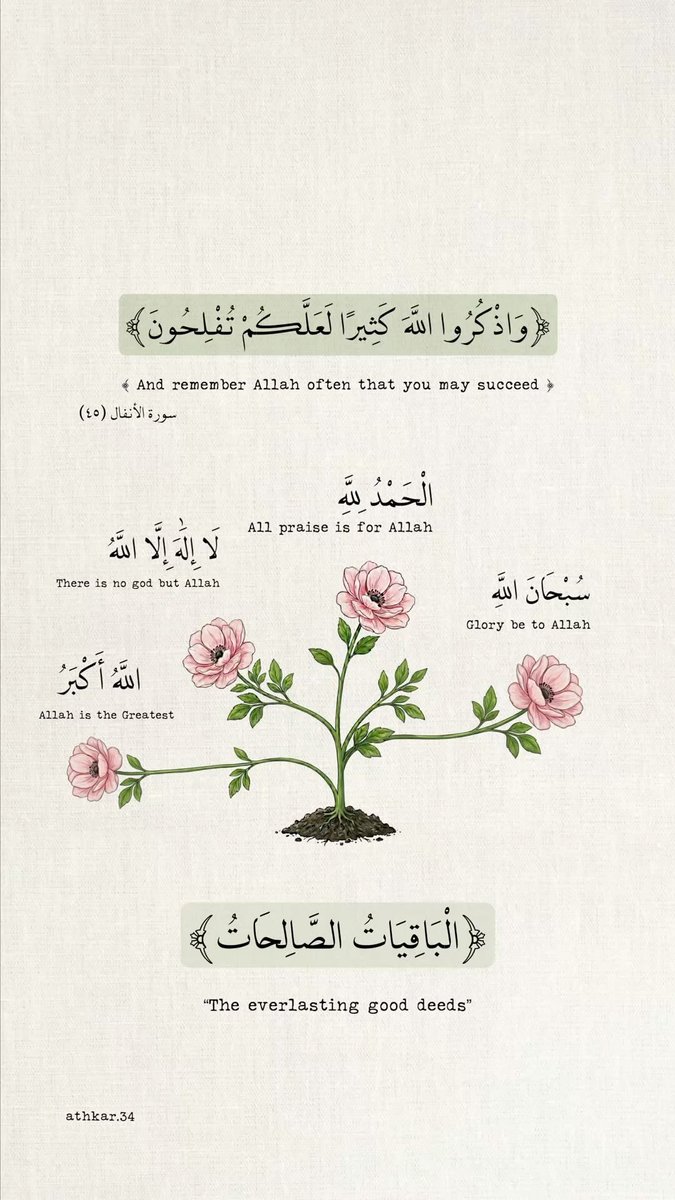 ﴿وَاذْكُرُوا اللَّهَ كَثِيرًا لَعَلَّكُمْ تُفْلِحُونَ﴾
﴾ And remember Allah often that you may succeed ﴿
سورة الأنفال (٤٥)
الْحَمْدُ لِلَّهِ
All praise is for Allah
لَا إِلَٰهَ إِلَّا اللَّهُ
There is no god but Allah
سُبْحَانَ اللَّهِ
Glory be to Allah
اللَّهُ أَكْبَرُ
Allah is the Greatest
﴿الْبَاقِيَاتُ الصَّالِحَاتُ﴾
“The everlasting good deeds”
athkar.34